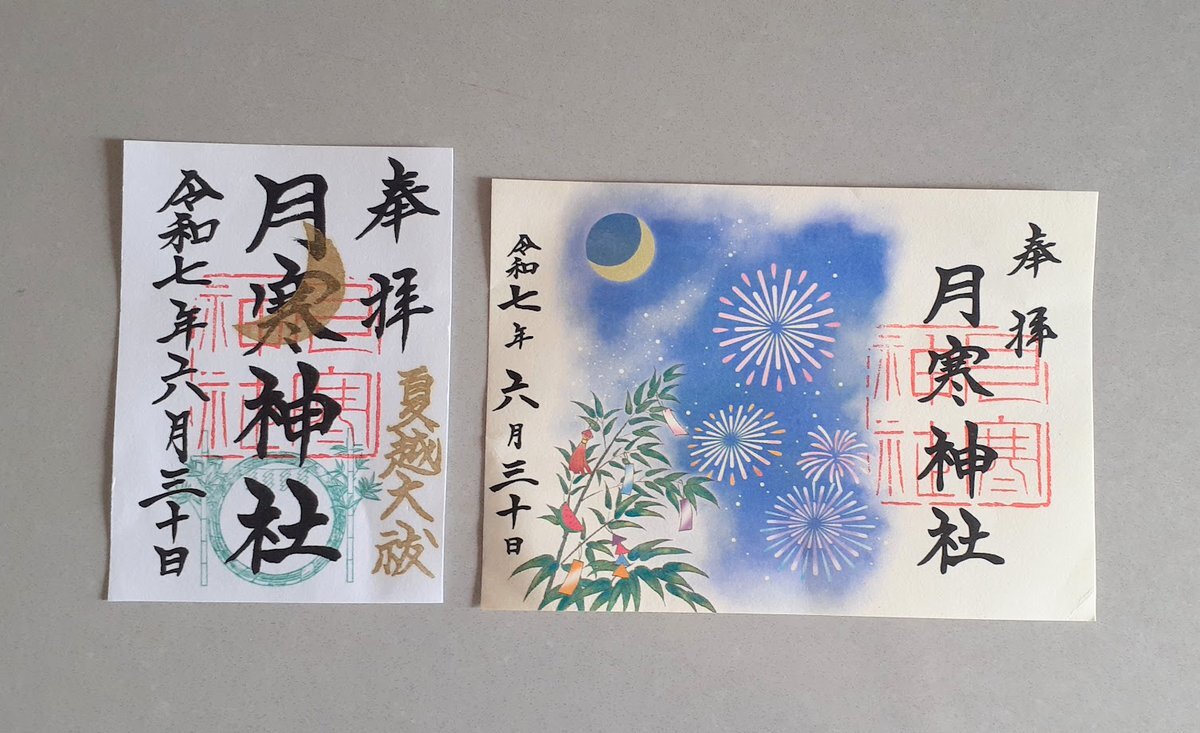 奉拝
夏越大祓
月寒神社
令和七年六月三十日
奉拝
月寒神社
令和七年六月三十日